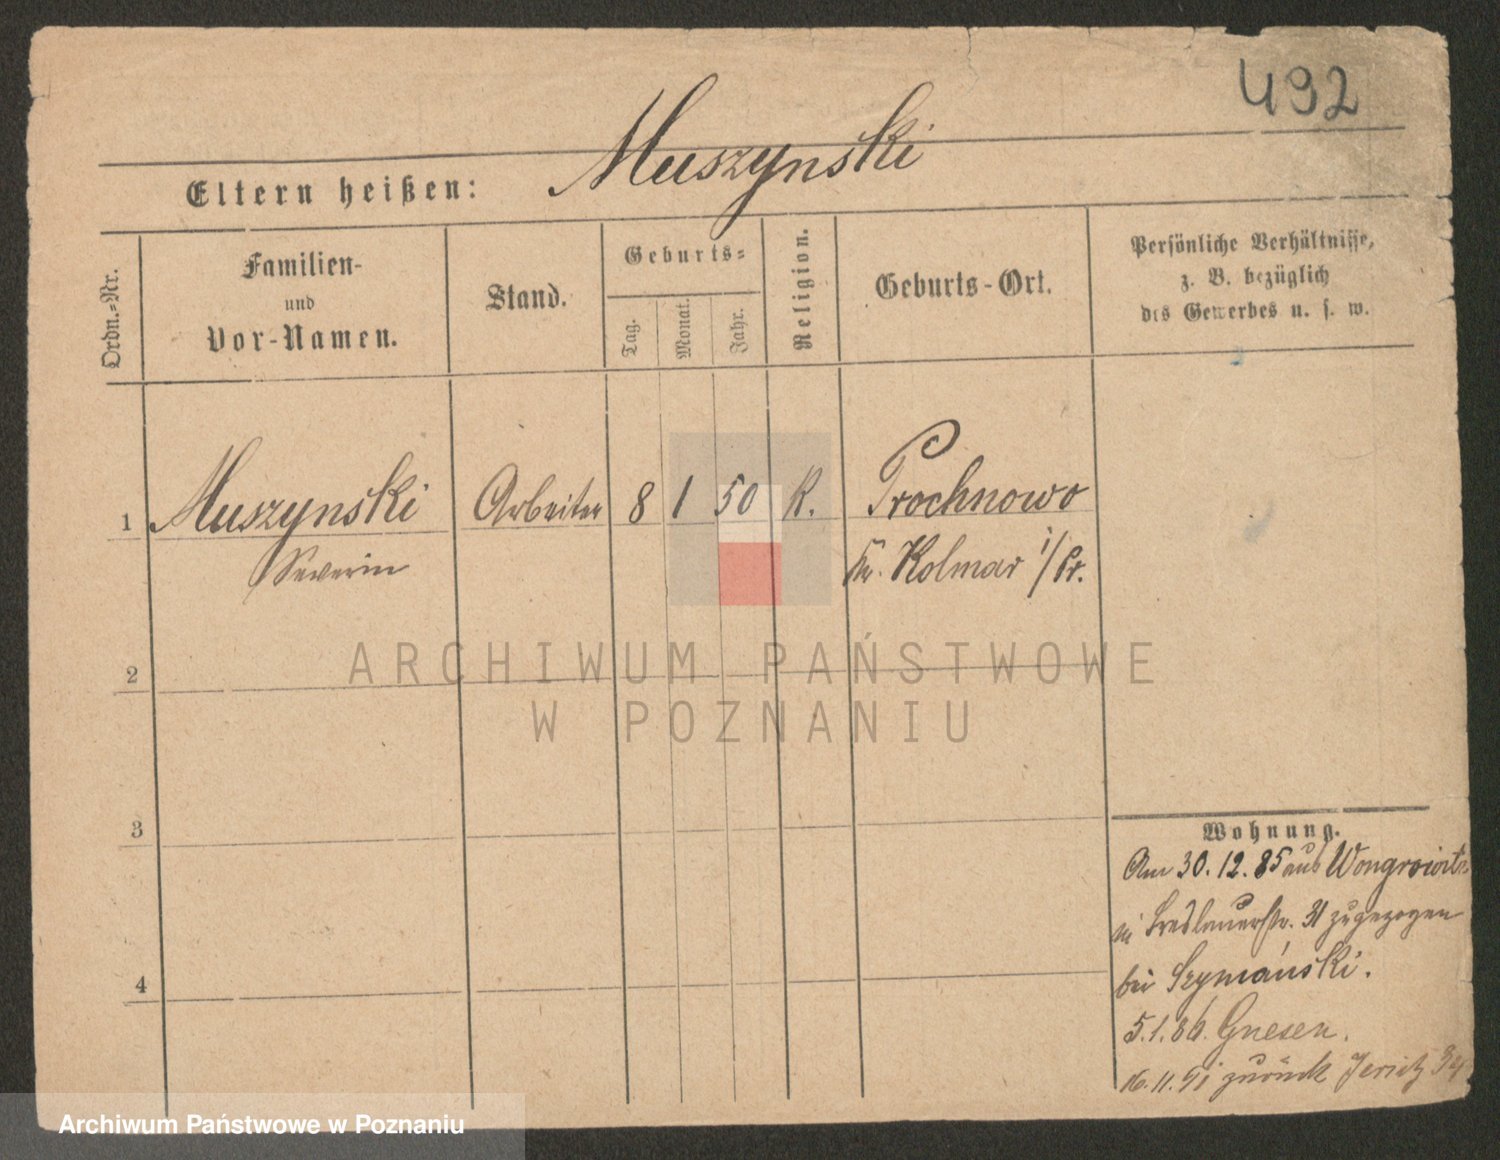 492
Muszynski
Eltern heißen:
Ordn.-Nr.
Familien-
und
Vor-Namen.
Stand.
Geburts-
Tag.
Monat.
Jahr.
Religion.
Geburts-Ort.
Persönliche Verhältnisse,
z. B. bezüglich
des Gewerbes u. s. w.
1 Muszynski Arbeiter 8 1 50 K. Prochnowo
Severin Kr. Kolmar i/Pr.
2
3
4
Wohnung.
Am 30. 12. 85 aus Wongrowitz
in Breslauerstr. 31 zugezogen
bei Szymański.
5.1.86. Gnesen.
16.11.91 zurück Jersitz
ARCHIWUM PAŃSTWOWE
W POZNANIU
Archiwum Państwowe w Poznaniu